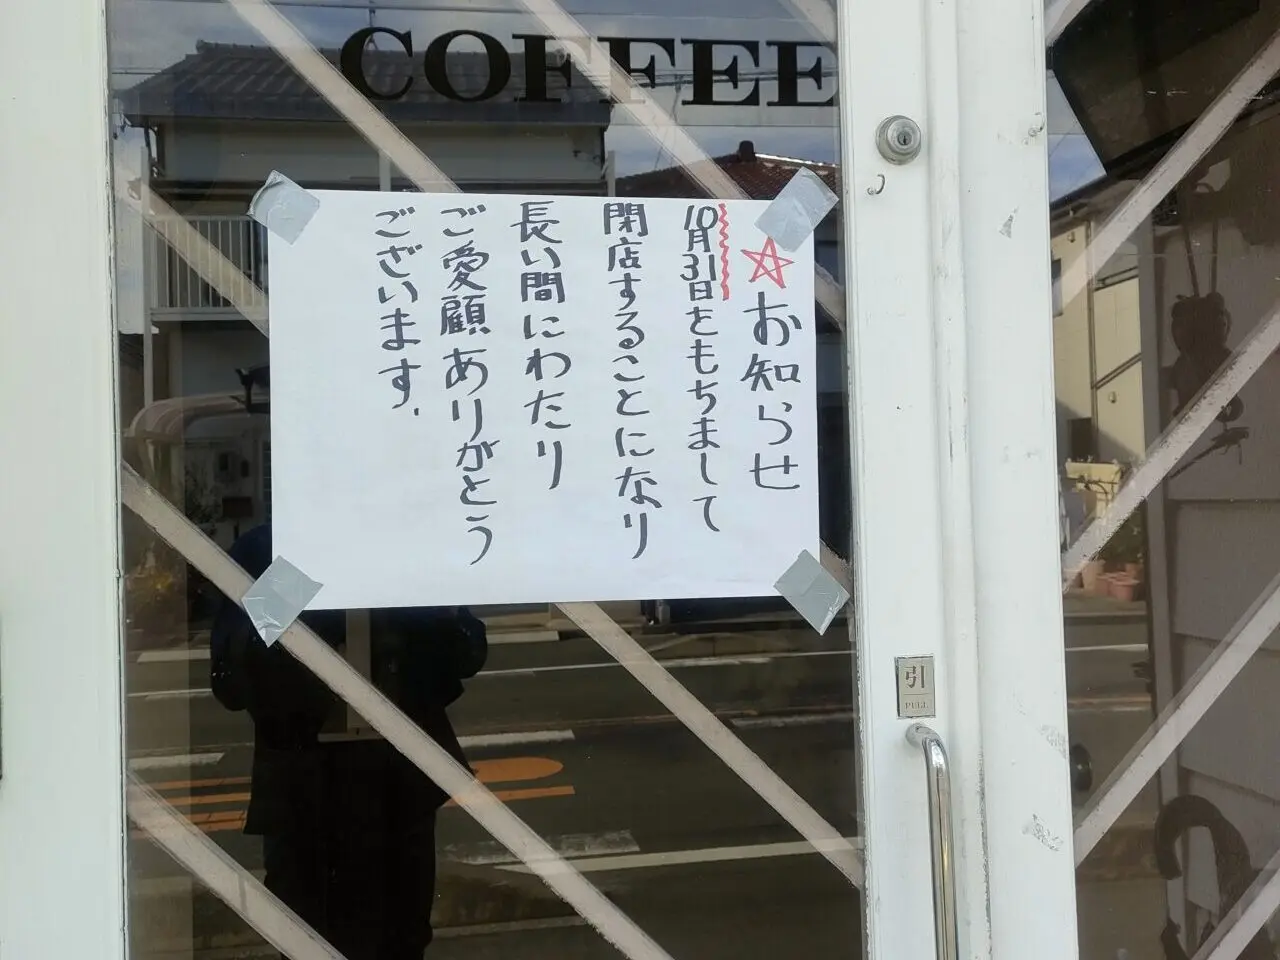 COFFEE
☆お知らせ
10月31日をもちまして
閉店することになり
長い間にわたり
ご愛顧ありがとう
ございます.
引
PULL